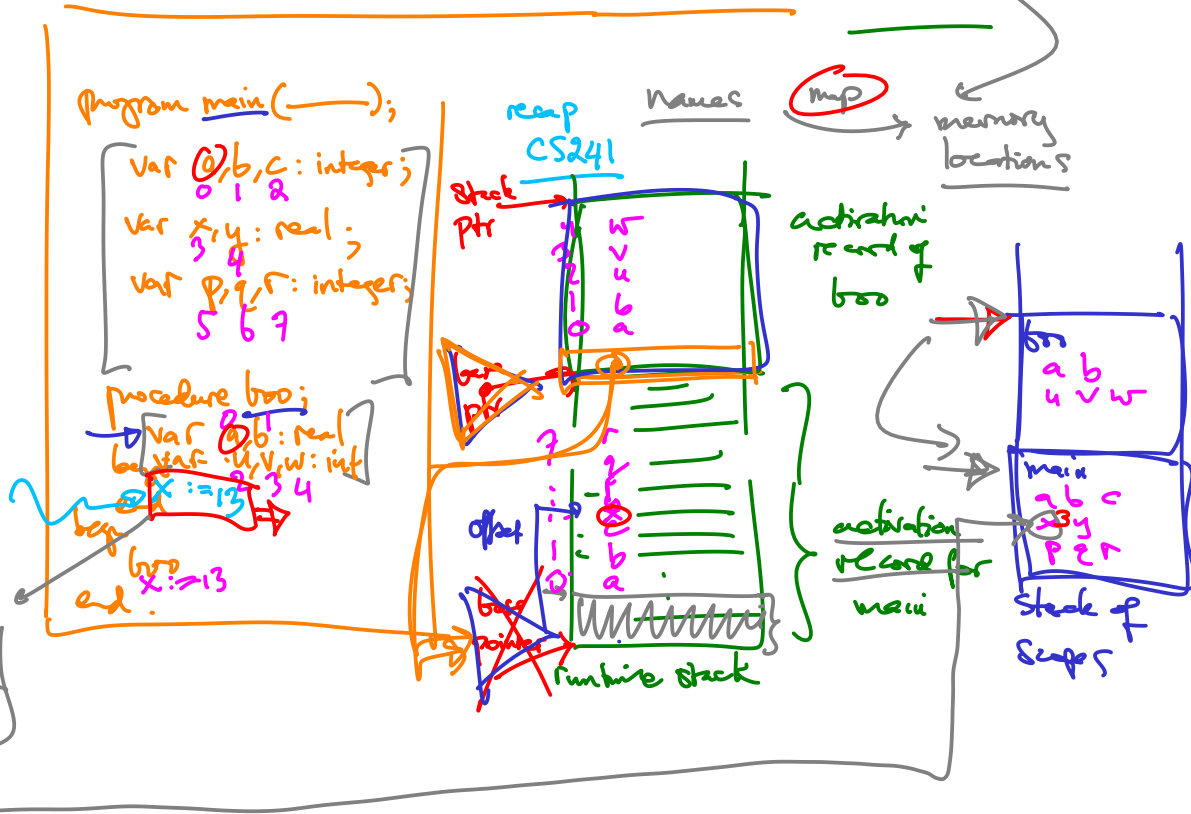 program main( );
var a, b, c : integer;
0 1 2
var x, y : real ;
3 4
var p, q, r : integer;
5 6 7
procedure boo;
0 1
var a, b : real
var u, v, w : int
2 3 4
x := 13
begin
boo
x := 13
end.
recap
CS241
names
map
memory
locations
stack
ptr
w
v
2 u
1 b
0 a
activation
record of
boo
base
ptr
7 r
q
offset
x
1 b
0 a
base
pointer
runtime stack
activation
record for
main
boo
a b
u v w
main
a b c
x 3 y
p q r
Stack of
Scopes